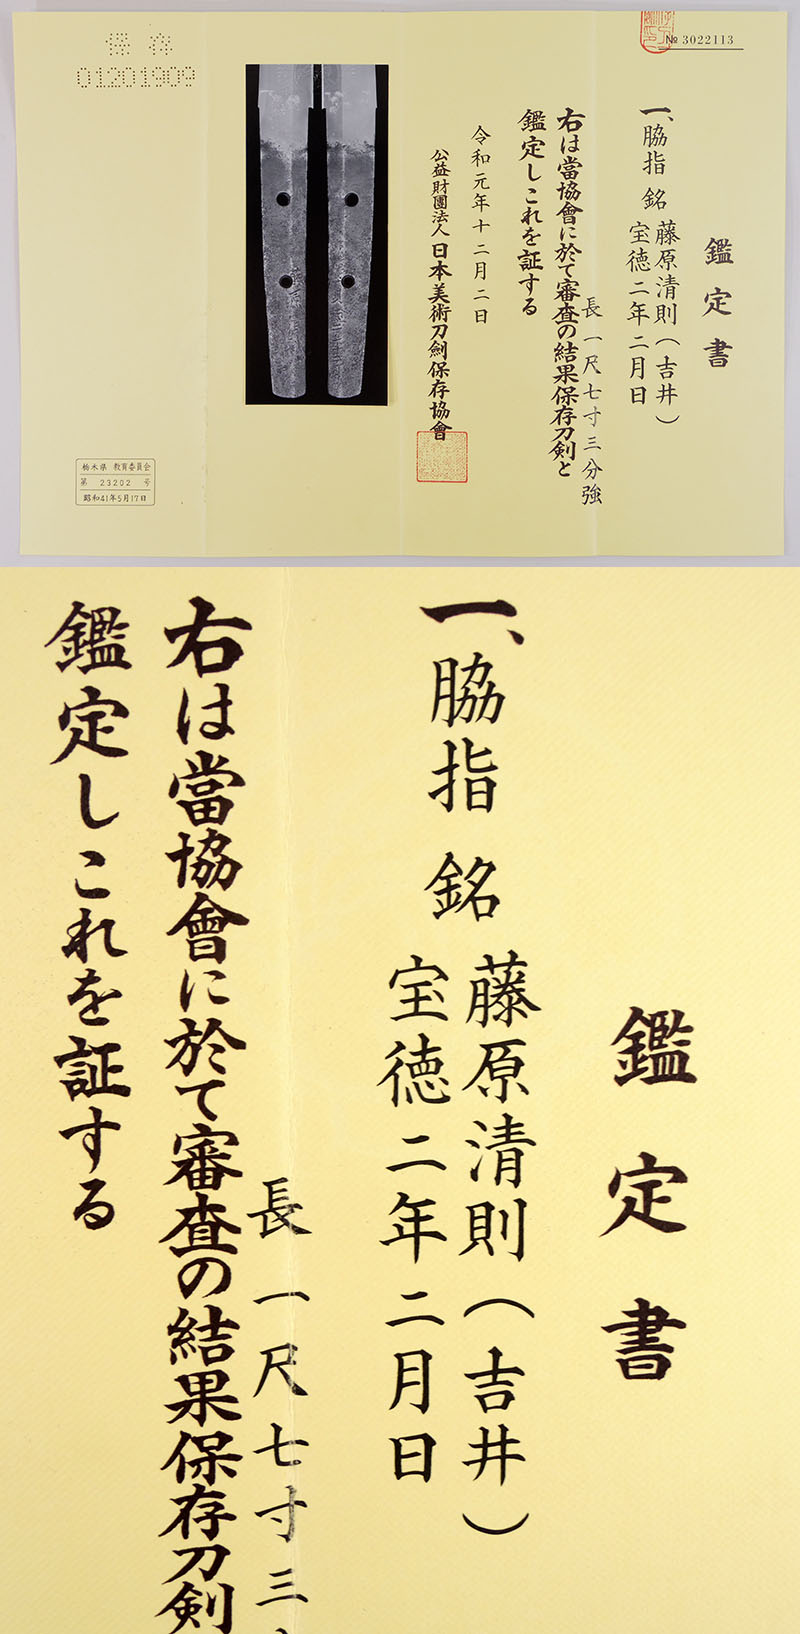 № 3022113
鑑定書
一、脇指 銘 藤原清則(吉井)
宝徳二年二月日
長 一尺七寸三分強
右は當協會に於て審査の結果保存刀剣と
鑑定しこれを証する
令和元年十二月二日
公益財團法人 日本美術刀劍保存協會
保存
01201909
栃木県 教育委員会
第 23202 号
昭和41年5月17日
鑑定書
一、脇指 銘 藤原清則(吉井)
宝徳二年二月日
長 一尺七寸三
右は當協會に於て審査の結果保存刀剣
鑑定しこれを証する